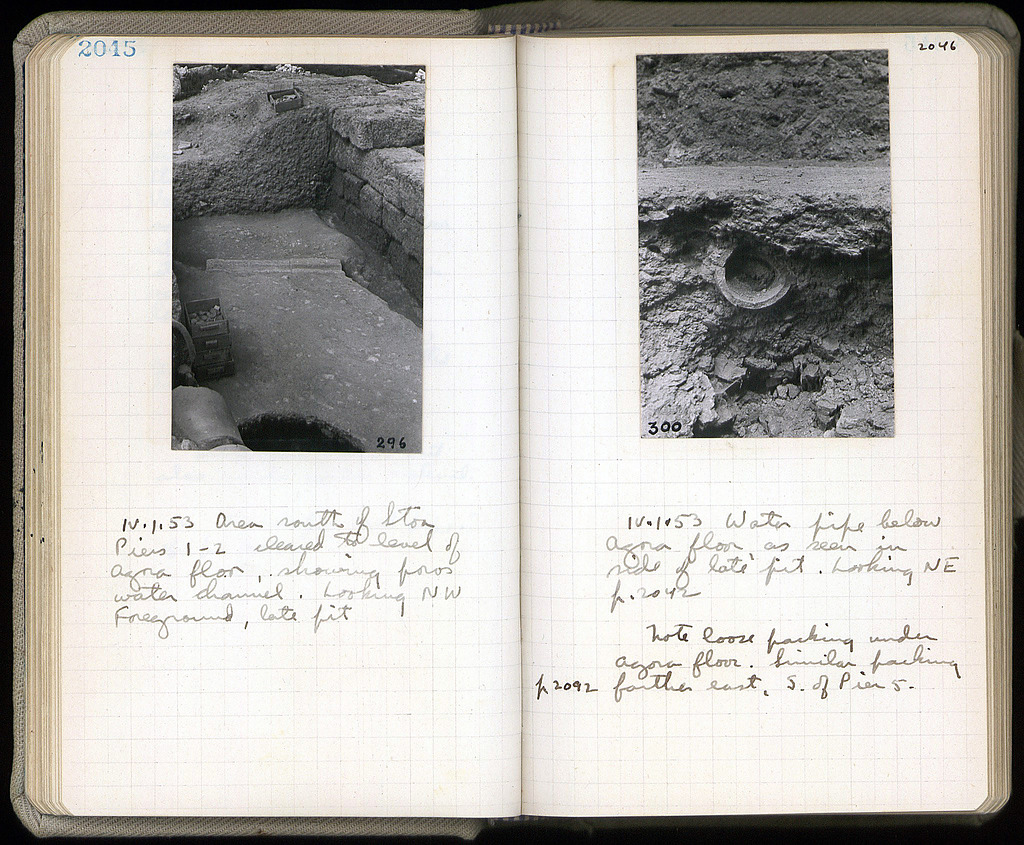 2045
296
IV.1.53 Area south of Stoa
Piers 1-2 cleared to level of
agora floor, showing poros
water channel. Looking NW
Foreground, late pit
2046
300
IV.1.53 Water pipe below
agora floor, as seen in
side of late pit. Looking NE
p.2042
Note loose packing under
agora floor. Similar packing
p.2092 farther east, S. of Pier 5.